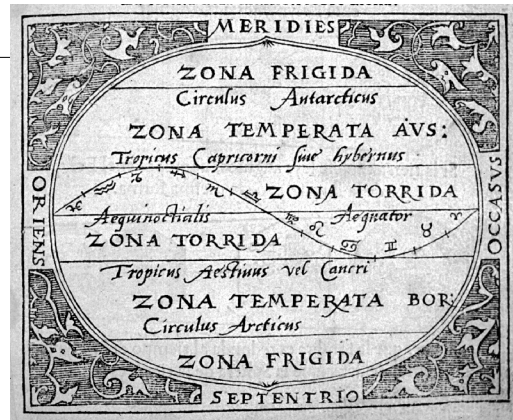 MERIDIES
ZONA FRIGIDA
Circulus Antarcticus
ZONA TEMPERATA AVS:
Tropicus Capricorni siue hybernus
ZONA TORRIDA
ORIENS
OCCASVS
Aequinoctialis Aequator
♓ ♒ ♑ ♐ ♏ ♎ ♍ ♌ ♋ ♊ ♉ ♈
ZONA TORRIDA
Tropicus Aestiuus vel Cancri
ZONA TEMPERATA BOR:
Circulus Arcticus
ZONA FRIGIDA
SEPTENTRIO